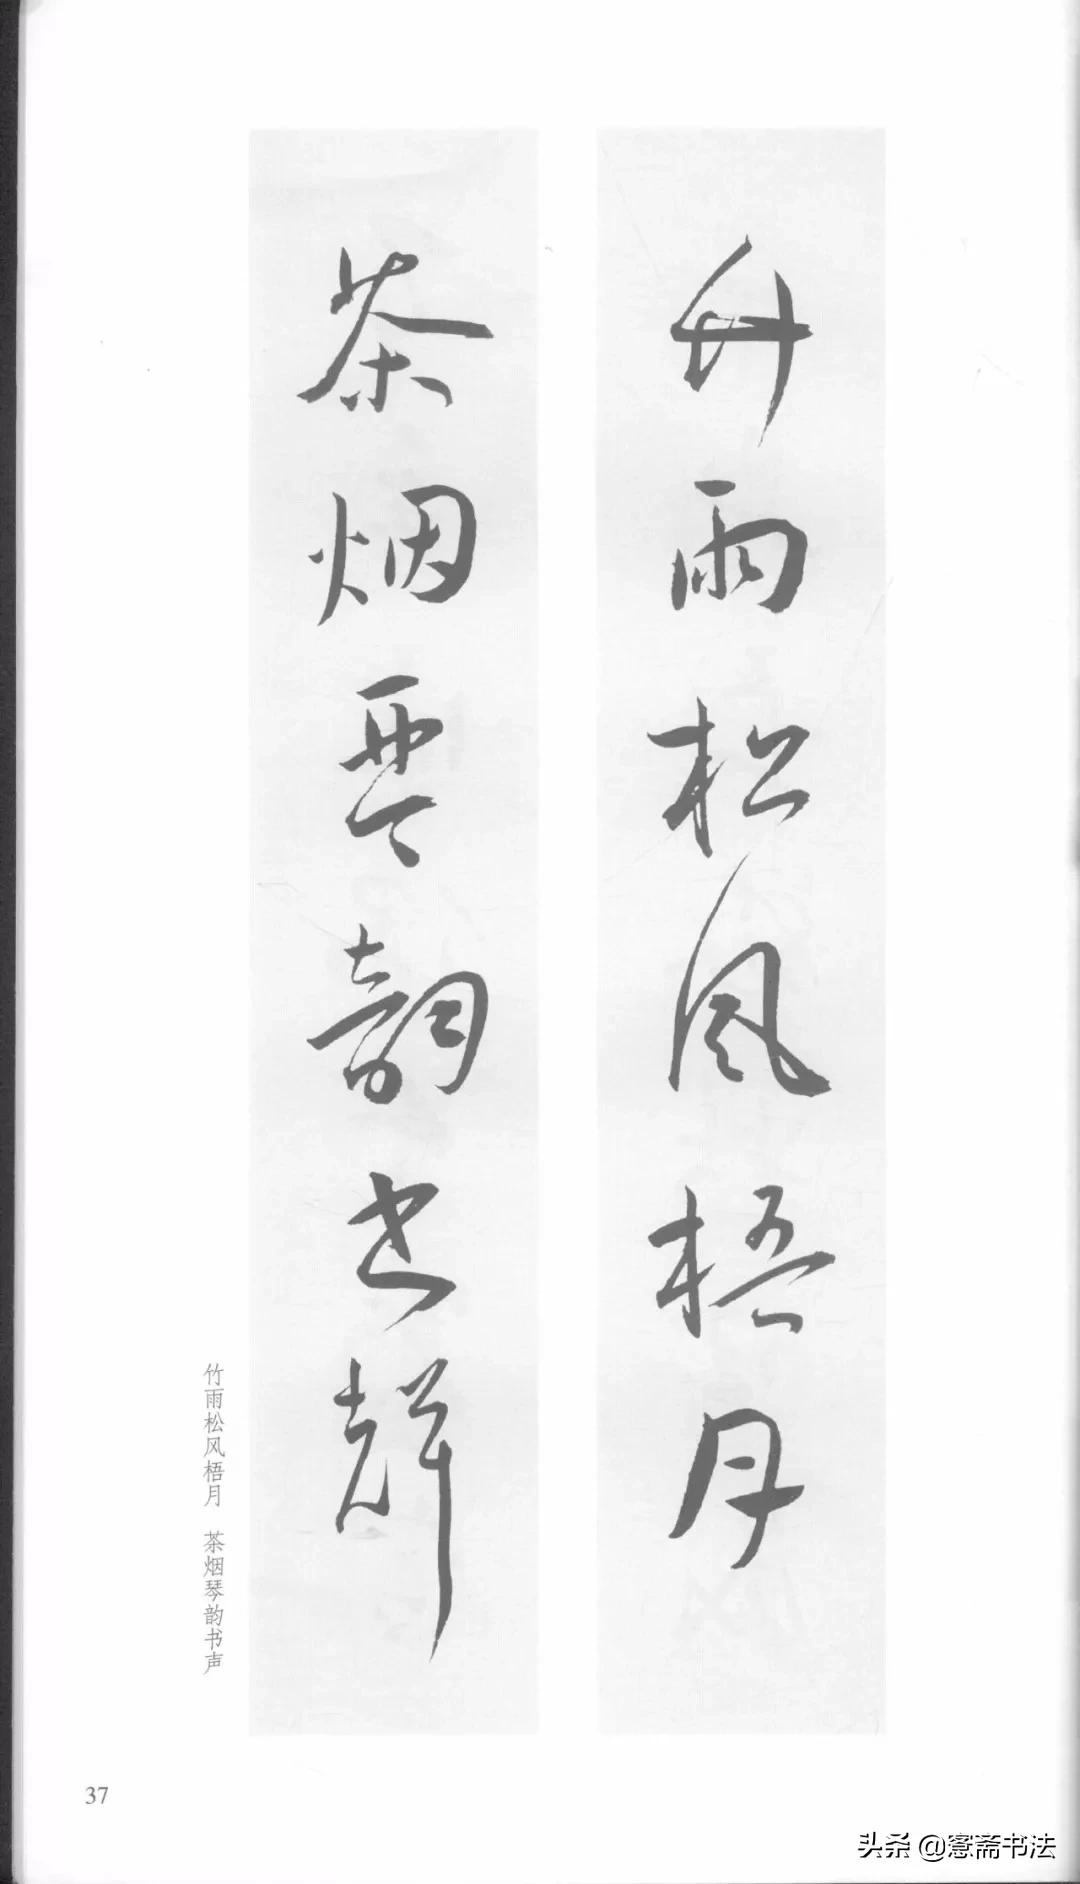 竹雨松风梧月
茶烟琴韵书声
竹雨松风梧月 茶烟琴韵书声
37
头条 @窓斋书法